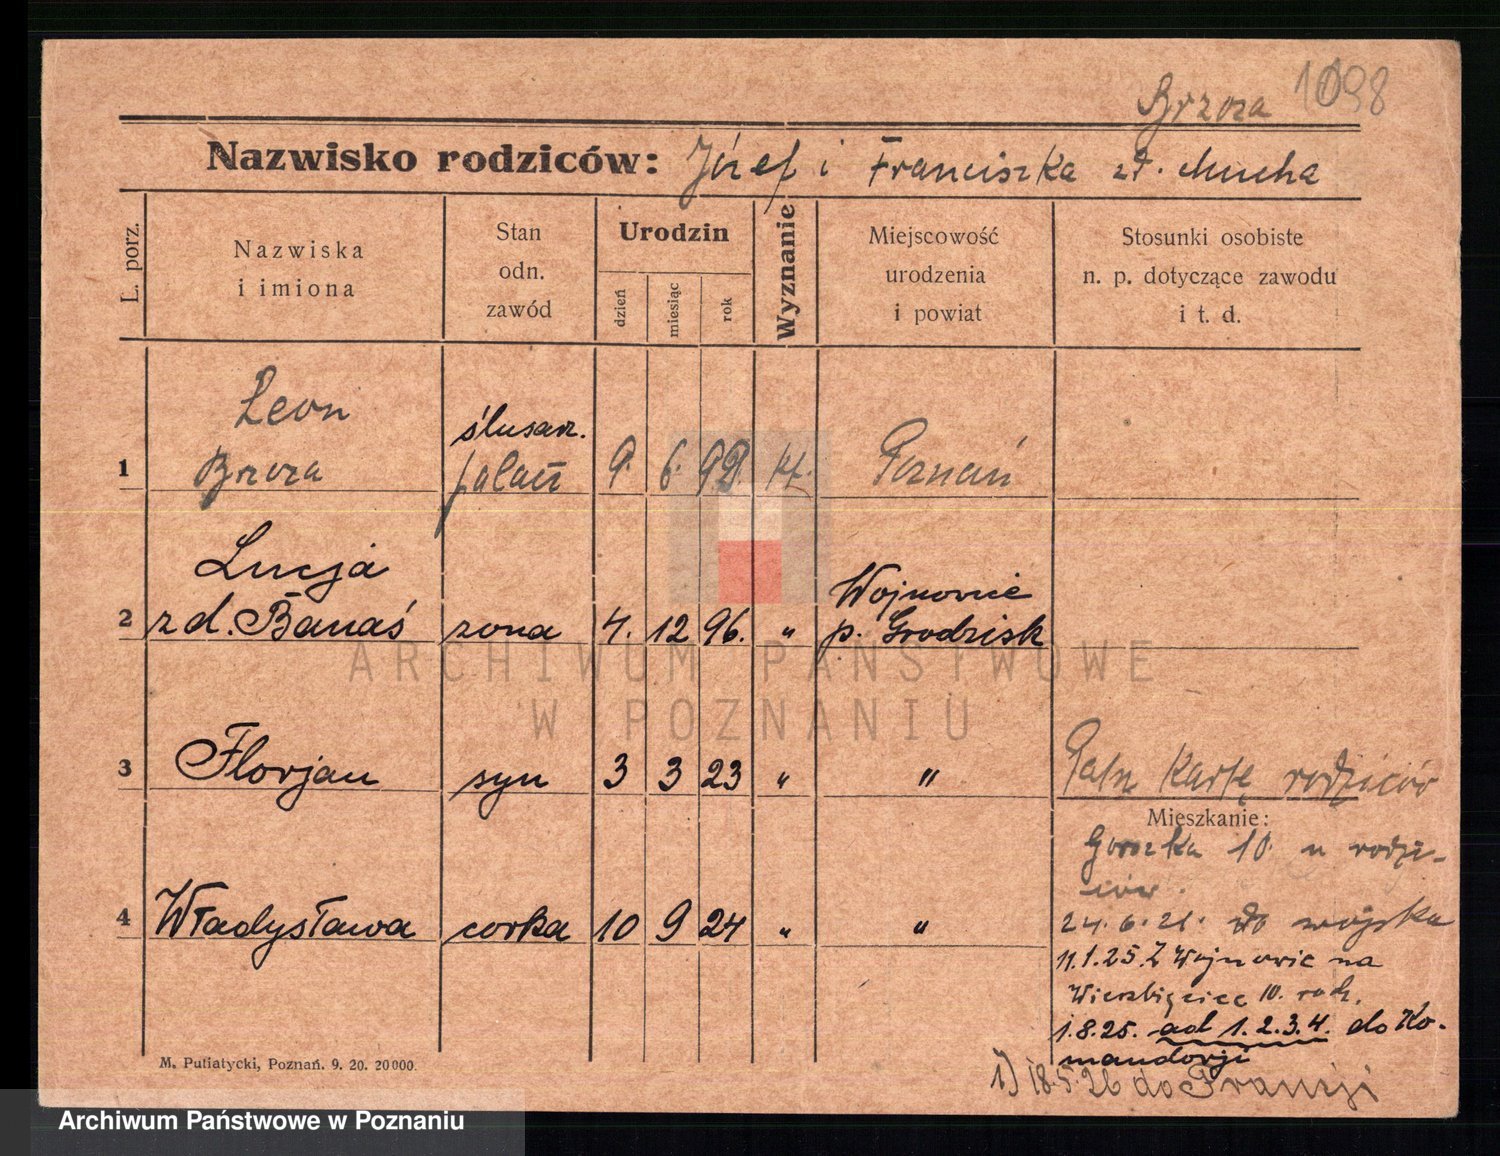 Brzoza 1098
Nazwisko rodziców: Józef i Franciszka zd. Mucha
L. porz.
Nazwiska i imiona
Stan odn. zawód
Urodzin
dzień
miesiąc
rok
Wyznanie
Miejscowość urodzenia i powiat
Stosunki osobiste n. p. dotyczące zawodu i t. d.
Leon ślusarz.
1 Brzoza palacz 9. 6. 92 kt. Poznań
Lucja Wojnowice
2 zd. Banaś żona 4. 12 96. " p. Grodzisk
3 Florjan syn 3 3 23 " " Patrz Kartę rodziców
Mieszkanie:
10 u rodzi-
ców.
4 Władysława corka 10 9 24 " "
24.6.21. do wojska
11.1.25. Z Wojnowic na
Wierzbięcice 10. rodz.
1.8.25. ad 1.2.3.4. do Ko-
mandorji
1) 18.5.26 do Francji
M. Putiatycki, Poznań. 9. 20. 20000.
ARCHIWUM PAŃSTWOWE
W POZNANIU
Archiwum Państwowe w Poznaniu